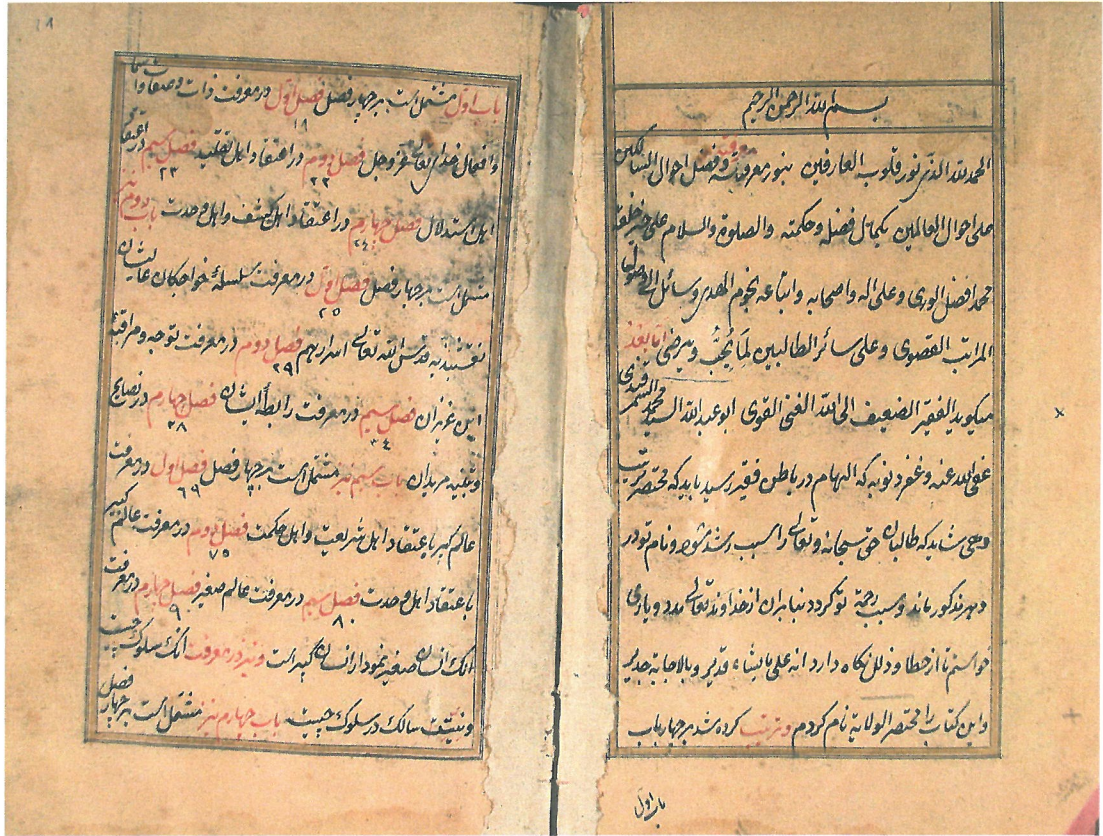 بسم الله الرحمن الرحیم
معرفته
الحمد لله الذی نور قلوب العارفین بنور معرفته و فضل احوال السالکین
علی احوال العالمین بکمال فضله و حکمته والصلوة والسلام علی خیر خلقه
محمد افضل الوری و علی اله واصحابه واتباعه نجوم الهدی وسائل الی وصول
المراتب القصوی و علی سائر الطالبین لما یحب و یرضی اما بعد
میکوید الفقیر الضعیف الی الله الغنی القوی ابو عبد الله السید محمد السمرقندی
عفی الله عنه و غفر ذنوبه که الهام در باطن فقیر رسید باید که مختصر ترتیب
دهی شاید که طالبان حق سبحانه و تعالی را سبب رشد شود و نام تو در
دهر مذکور ماند و سبب رحمة تو کردد بنابران از خداوند تعالی مدد و یاری
خواستم تا از خطا و ذلل نکاه دارد انه علی ما یشاء قدیر و بالاجابة جدیر
و این کتاب را مختصر الولایة نام کردم و ترتیب کرده شد بر چهار باب
باب اول
۱۸
باب اول مشتمل است بر چهار فصل فصل اول در معرفت ذات و صفات و اسما
۱۹
و افعال خدای تعالی عز و جل فصل دوم در اعتقاد اهل تقلید فصل سیم در اعتقاد
۲۲ ۲۳
اهل استدلال فصل چهارم در اعتقاد اهل کشف و اهل وحدت باب دوم نیز
۲٤
مشتمل است بر چهار فصل فصل اول در معرفت سلسلهٔ خواجکان عالیشان
۲۵
نقشبندیه قدس الله تعالی اسرارهم فصل دوم در معرفت توجه و مراقبهٔ
۲۹
این عزیزان فصل سیم در معرفت رابطهٔ ایشان فصل چهارم در نصایح
۳٤ ۳۸
و تنبیه مریدان باب سیم نیز مشتمل است بر چهار فصل فصل اول در معرفت
۶۹
عالم کبیر باعتقاد اهل شریعت و اهل حکمت فصل دوم در معرفت عالم کبیر
۷۵
باعتقاد اهل وحدت فصل سیم در معرفت عالم صغیر فصل چهارم در معرفت
۸۰ ۹
انک انسان صغیر نمودار انسان کبیر است و نیز در معرفت انک سلوک چیست
و نیت سالک در سلوک چیست باب چهارم نیز مشتمل است بر چهار فصل